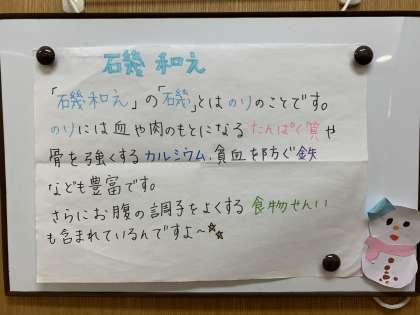 磯和え
「磯和え」の「磯」とはのりのことです。
のりには血や肉のもとになるたんぱく質や
骨を強くするカルシウム、貧血を防ぐ鉄
なども豊富です。
さらにお腹の調子をよくする食物せんい
も含まれているんですよ～